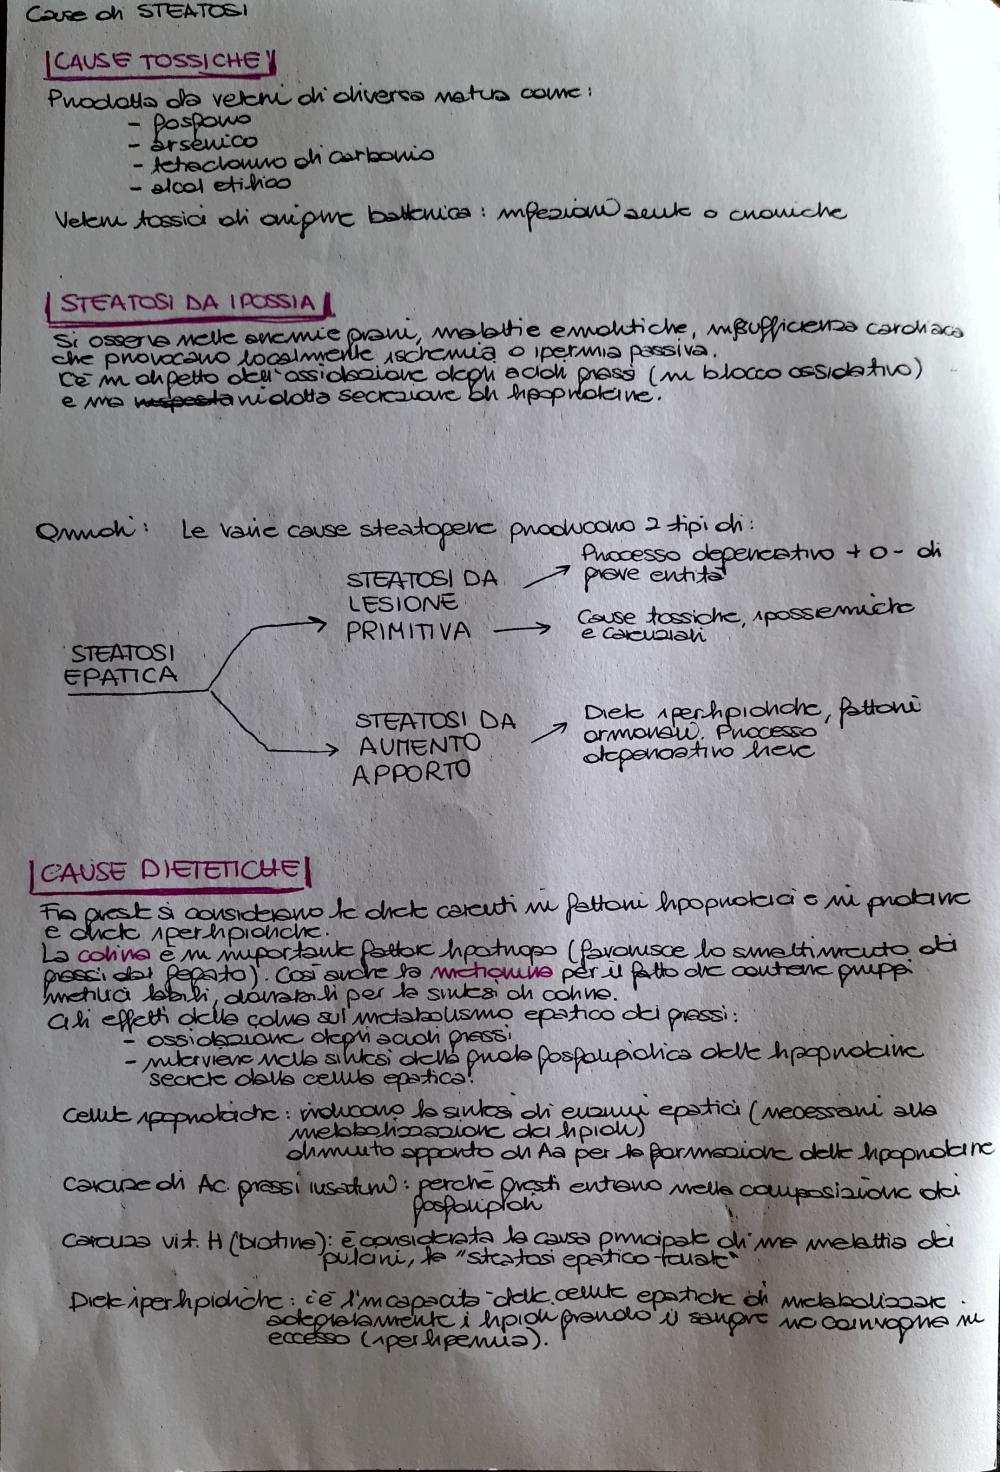 Cause di STEATOSI
CAUSE TOSSICHE
Prodotta da veleni di diversa natura come:
- fosforo
- arsenico
- tetracloruro di carbonio
- alcol etilico
Veleni tossici di origine batterica: infezioni acute o croniche
STEATOSI DA IPOSSIA
Si osserva nelle anemie gravi, malattie emolitiche, insufficienza cardiaca
che provocano localmente ischemia o ipermia passiva.
C'è un difetto dell'ossidazione degli acidi grassi (un blocco ossidativo)
e una risposta ridotta secrezione di lipoproteine.
Quindi: Le varie cause steatogene producono 2 tipi di:
STEATOSI EPATICA
STEATOSI DA LESIONE PRIMITIVA
Processo degenerativo + o - di
grave entità
Cause tossiche, ipossiemiche
e carenziali
STEATOSI DA AUMENTO APPORTO
Diete iperlipidiche, fattori
ormonali. Processo
degenerativo lieve
CAUSE DIETETICHE
Fra queste si considerano le diete carenti in fattori lipoproteici e in proteine
e diete iperlipidiche.
La colina è un importante fattore lipotropo (favorisce lo smaltimento dei
grassi dal fegato). Così anche la metionina per il fatto che contiene gruppi
metilici labili, donabili per la sintesi di colina.
Gli effetti della colina sul metabolismo epatico dei grassi:
- ossidazione degli acidi grassi
- interviene nella sintesi della quota fosfolipidica delle lipoproteine
secrete dalla cellula epatica.
Cellule ipoproteiche: inducono la sintesi di enzimi epatici (necessari alla
metabolizzazione dei lipidi)
diminuito apporto di Aa per la formazione delle lipoproteine
Carenze di Ac. grassi insaturi: perché questi entrano nella composizione dei
fosfolipidi
Carenza vit. H (biotina): è considerata la causa principale di una malattia dei
pulcini, la "steatosi epatico-renale"
Diete iperlipidiche: c'è l'incapacità delle cellule epatiche di metabolizzare
adeguatamente i lipidi quando il sangue ne convoglia in
eccesso (iperlipemia).